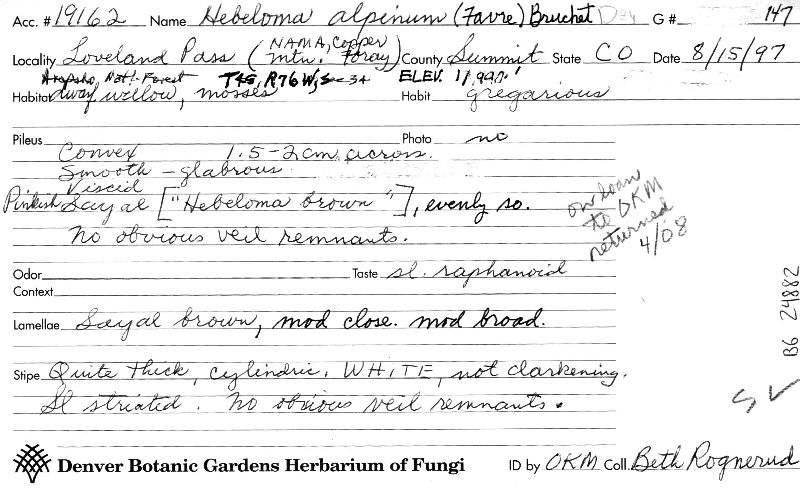 Acc. # 19162 Name Hebeloma alpinum (Favre) Bruchet G # 147
Locality Loveland Pass (NAMA, Copper Mtn. Foray) County Summit State CO Date 8/15/97
Arapaho Natl. Forest T4S, R76W, S 34 ELEV. 11,990'
Habitat dwarf willow, mosses Habit gregarious
Pileus Photo no
Convex 1.5-2 cm across.
Smooth - glabrous
Viscid
Pinkish Sayal ["Hebeloma brown"], evenly so.
No obvious veil remnants.
on loan
to OKM
returned
4/08
Odor Taste sl. raphanoid
Context
Lamellae Sayal brown, mod close. mod broad.
B6 24882
Stipe Quite thick, cylindric. WHITE, not darkening.
Sl striated. No obvious veil remnants.
Denver Botanic Gardens Herbarium of Fungi ID by OKM Coll. Beth Rognerud